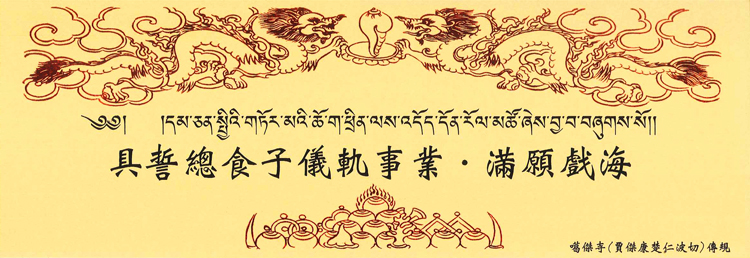 ༄༅། །དམ་ཅན་སྤྱིའི་གཏོར་མའི་ཆོ་ག་ཕྲིན་ལས་འདོད་དོན་རོལ་མཚོ་ཞེས་བྱ་བ་བཞུགས་སོ།།
具誓總食子儀軌事業·滿願戲海
噶傑寺(賈傑康楚仁波切)傳規